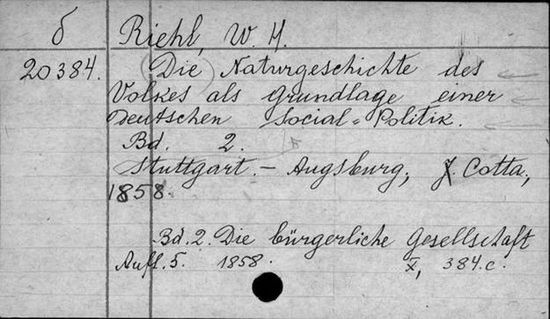 б Riehl, W. H.
20384. (Die) Naturgeschichte des
Volkes als Grundlage einer
Deutschen Social-Politik.
Bd. 2.
Stuttgart. - Augsburg, J. Cotta,
1858.
Bd. 2. Die bürgerliche Gesellschaft
Aufl. 5. 1858. X, 384 c.